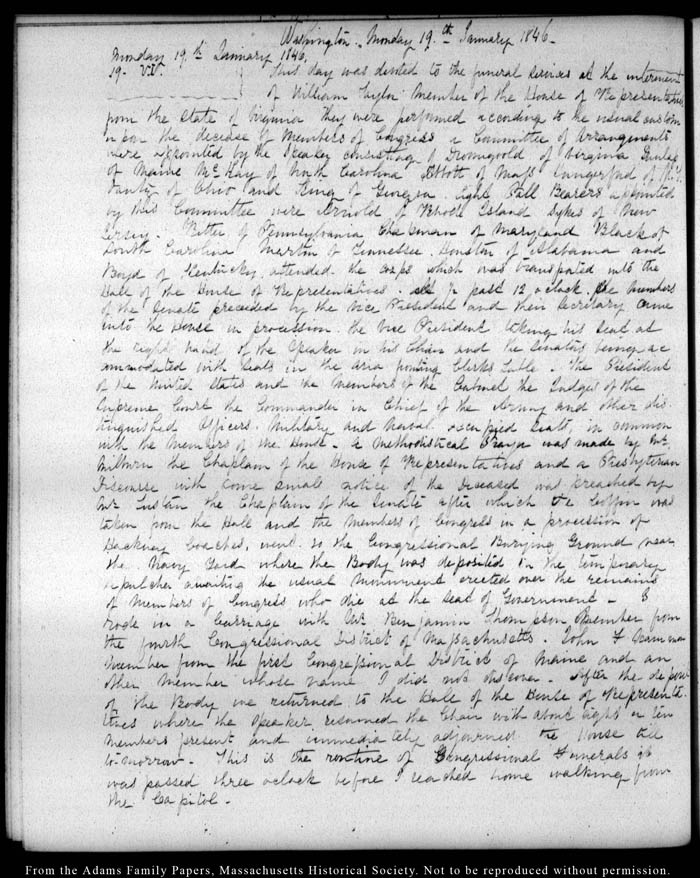 Washington. Monday 19.th January 1846.
Monday 19.th January 1846.
19. VI. This day was devoted to the funeral services at the interment
of William Taylor Member of the House of Representatives
from the State of Virginia They were performed according to the usual custom
upon the decease of Members of Congress a Committee of Arrangements
were appointed by the Speaker consisting of Dromgoold of Virginia Dunlap
of Maine McKay of North Carolina Abbott of Mass Hungerford of N.Y.
Vanly of Ohio and King of Georgia. Eight Pall Bearers appointed
by this Committee were Arnold of Rhode Island Sykes of New
Jersey. Ritter of Pennsylvania Chapman of Maryland Black of
South Carolina Martin of Tennessee. Houston of Alabama and
Boyd of Kentucky. attended the corps which was transported into the
Hall of the House of Representatives. At ½ past 12 o'clock. the members
of the Senate preceded by the Vice President and their Secretary came
into the House in procession. the Vice President taking his seat at
the right hand of the Speaker in his Chair and the Senators being ac
ommodated with seats in the area fronting Clerks Table. The President
of the United States and the Members of the Cabinet the Judges of the
Supreme Court the Commander in Chief of the Army and other dis
tinguished Officers. Military and Naval. occupied seats, in common
with the Members of the House. A Methodistical Prayer was made by Mr.
Milburn the Chaplain of the House of Representatives and a Presbyterian
Discourse with some small notice of the Deceased was preached by
Mr Tustan the Chaplain of the Senate after which the Coffin was
taken from the Hall and the Members of Congress in a procession of
Hackney Coaches, went to the Congressional Burying Ground near
the Navy Yard where the Body was deposited in the temporary
sepulcher awaiting the usual Monument erected over the remains
of Members of Congress who die at the seat of Government. I
rode in a Carriage with Mr Benjamin Thompson Member from
the fourth Congressional District of Massachusetts. John F Scamman
Member from the first Congressional District of Maine and an
other Member whose name I did not discover. After the deposit
of the Body we returned to the Hall of the House of Representa
tives where the Speaker resumed the Chair with about eight or ten
members present and immediately adjourned the House till
to-morrow. This is the routine of Congressional Funerals it
was passed three oclock before I reached home walking from
the Capitol.
From the Adams Family Papers, Massachusetts Historical Society. Not to be reproduced without permission.